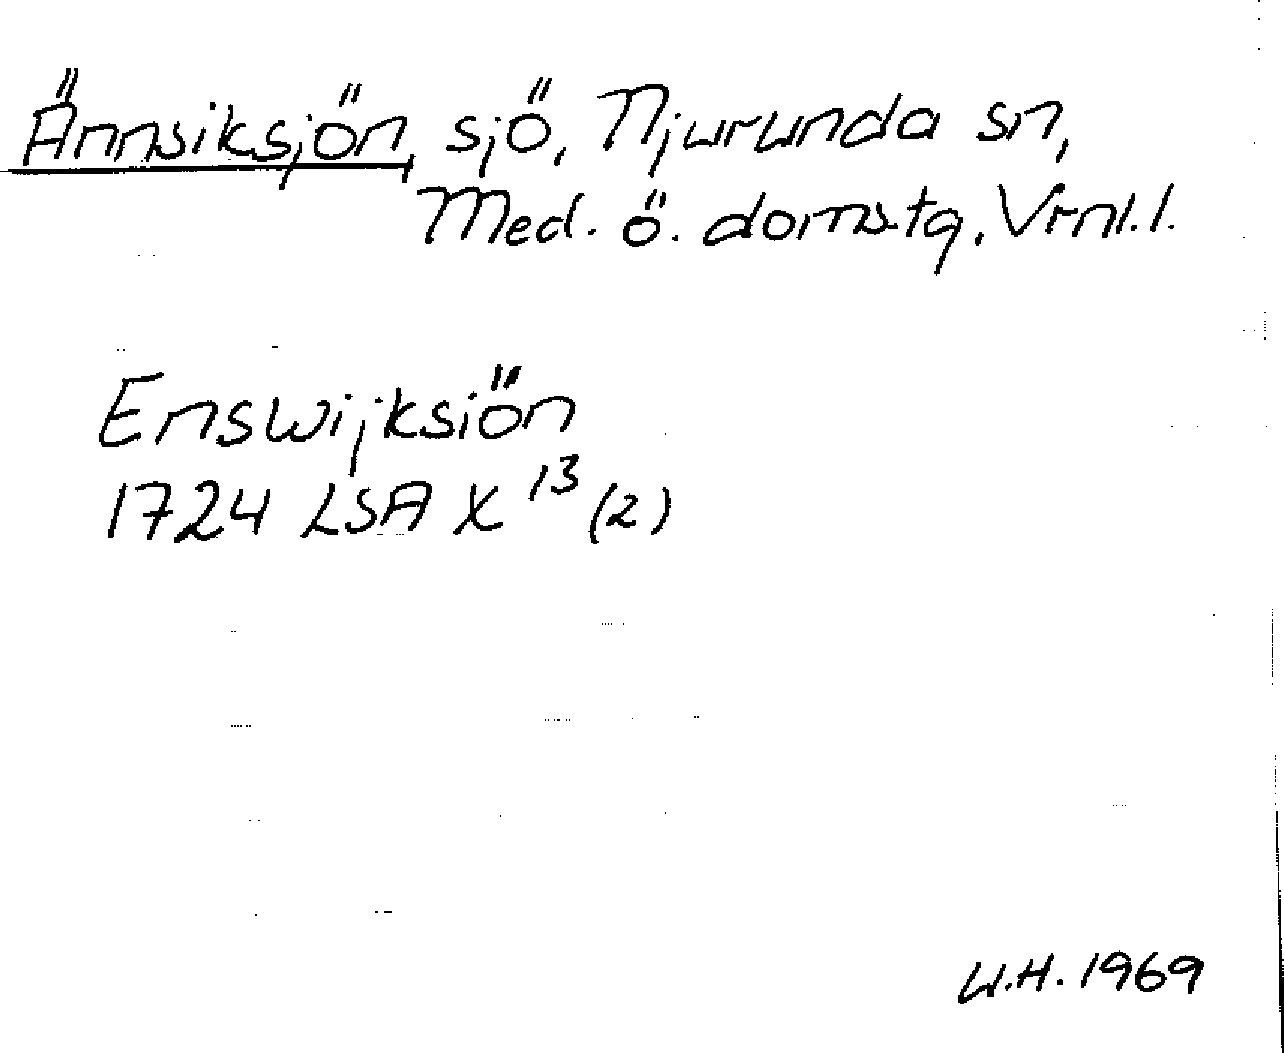 Ännsiksjön, sjö, Njurunda sn,
Med. ö. doms.tg. Vrnl.l.
Enswijksiön
1724 LSA X 13 (2)
W.H. 1969